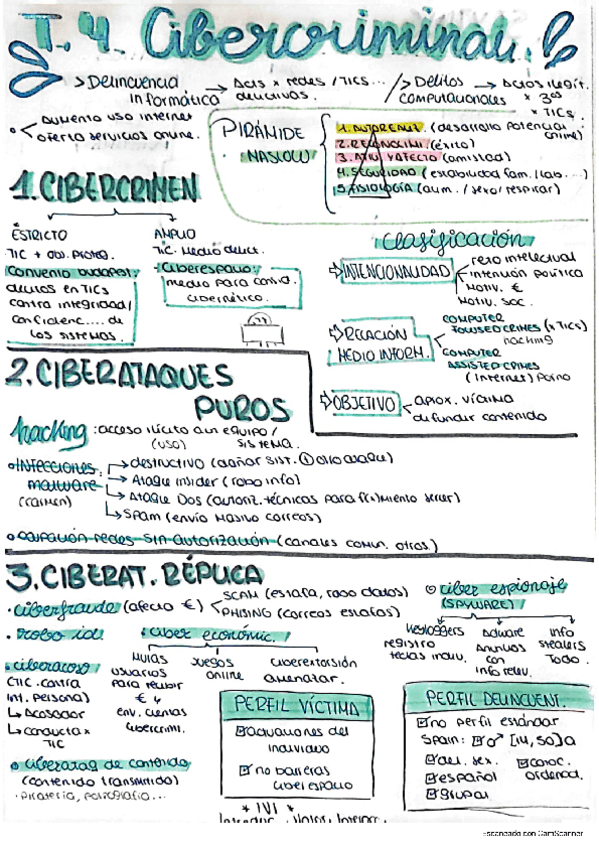 T. 4. Cibercriminal.
> Delincuencia informática → Delis x redes / TICS...
delictivos.
/> Delitos computacionales → Actos ilegít.
x 3os
x TICs
• aumento uso internet
oferta servicios online.
PIRÁMIDE
MASLOW
1. AUTOREALI. (desarrollo potencial online)
2. RECONOCIMI. (éxito)
3. ATIV. Y AFECTO (amistad)
4. SEGURIDAD (estabilidad fam./lab. ...)
5. FISIOLOGÍA (alim. / sexo / respirar)
1. CIBERCRIMEN
ESTRICTO
TIC + obj. proteg.
Convenio Budapest:
delitos en TICs
contra integridad/
confidenc.... de
los sistemas.
AMPLIO
TIC. Medio delict.
Ciberespacio:
medio para
cibernético.
Clasificación
⇒ INTENCIONALIDAD
reto intelectual
intención política
motiv. €
motiv. soc.
⇒ RELACIÓN
MEDIO INFORM.
COMPUTER
FOCUSED CRIMES (x TICs)
hacking
COMPUTER
ASSISTED CRIMES
(Internet) Porno
⇒ OBJETIVO
aprox. víctima
difundir contenido
2. CIBERATAQUES
PUROS
hacking: acceso ilícito a un equipo /
(uso) sistema.
• INFECCIONES
malware
(carmen)
→ destructivo (dañar sist. ① otro ataque)
→ Ataque insider (robo info)
→ Ataque Dos (autoriz. técnicas para f(x)miento server)
↳ Spam (envío masivo correos)
• ocupación redes sin autorización (canales comun. otros.)
3. CIBERAT. RÉPLICA
• ciberfraude (afecta €)
SCAM (estafa, robo datos)
PHISING (correos estafas)
• robo ide.
• ciber económic.
Mulas
usuarios
para recibir
€ y
env. cuentas
cibercrimi.
Juegos
online
Ciberextorsión
amenazar.
• ciberacoso
(TIC. contra
int. persona)
↳ Acosador
↳ conducta x
TIC
• Ciberataq de contenido
(contenido transmitido)
· Piratería, pedofilia...
⊙ ciber espionaje
(SPYWARE)
Keyloggers
registro
teclas indiv.
Adware
Anuncios
con
info relev.
info
stealers
Todo.
PERFIL VÍCTIMA
☑ actuaciones del
individuo
☑ no barreras
ciberespacio
* IVI *
PERFIL DELINCUENT.
☑ no perfil estándar
Spain: ☑ ♂ [14, 50]a
☑ del. sex. ☑ conoc.
☑ español ordenad.
☑ grupal
Escaneado con CamScanner